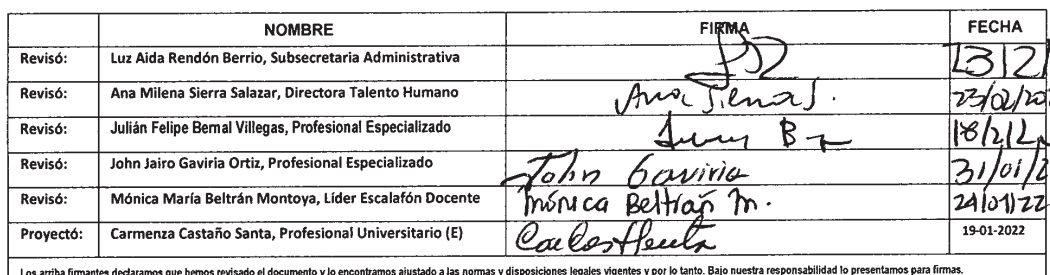 NOMBRE FIRMA FECHA
Revisó: Luz Aida Rendón Berrio, Subsecretaria Administrativa
Revisó: Ana Milena Sierra Salazar, Directora Talento Humano Ana Sierra S. 23/02/20
Revisó: Julián Felipe Bernal Villegas, Profesional Especializado 18/2/2
Revisó: John Jairo Gaviria Ortiz, Profesional Especializado John Gaviria 31/01/2
Revisó: Mónica María Beltrán Montoya, Líder Escalafón Docente Mónica Beltrán M. 24/01/22
Proyectó: Carmenza Castaño Santa, Profesional Universitario (E) 19-01-2022
Los arriba firmantes declaramos que hemos revisado el documento y lo encontramos ajustado a las normas y disposiciones legales vigentes y por lo tanto. Bajo nuestra responsabilidad lo presentamos para firmas.